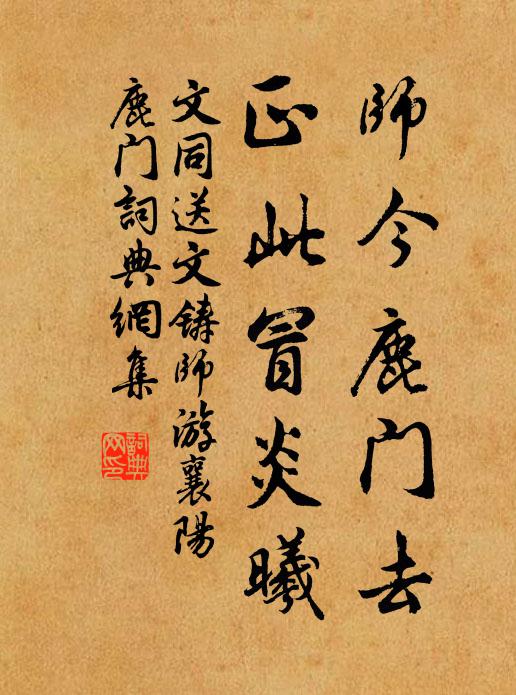 師今鹿门去
正此冒炎曦
文同送文鋳师游襄陽
鹿门詞典網集
詞典网印